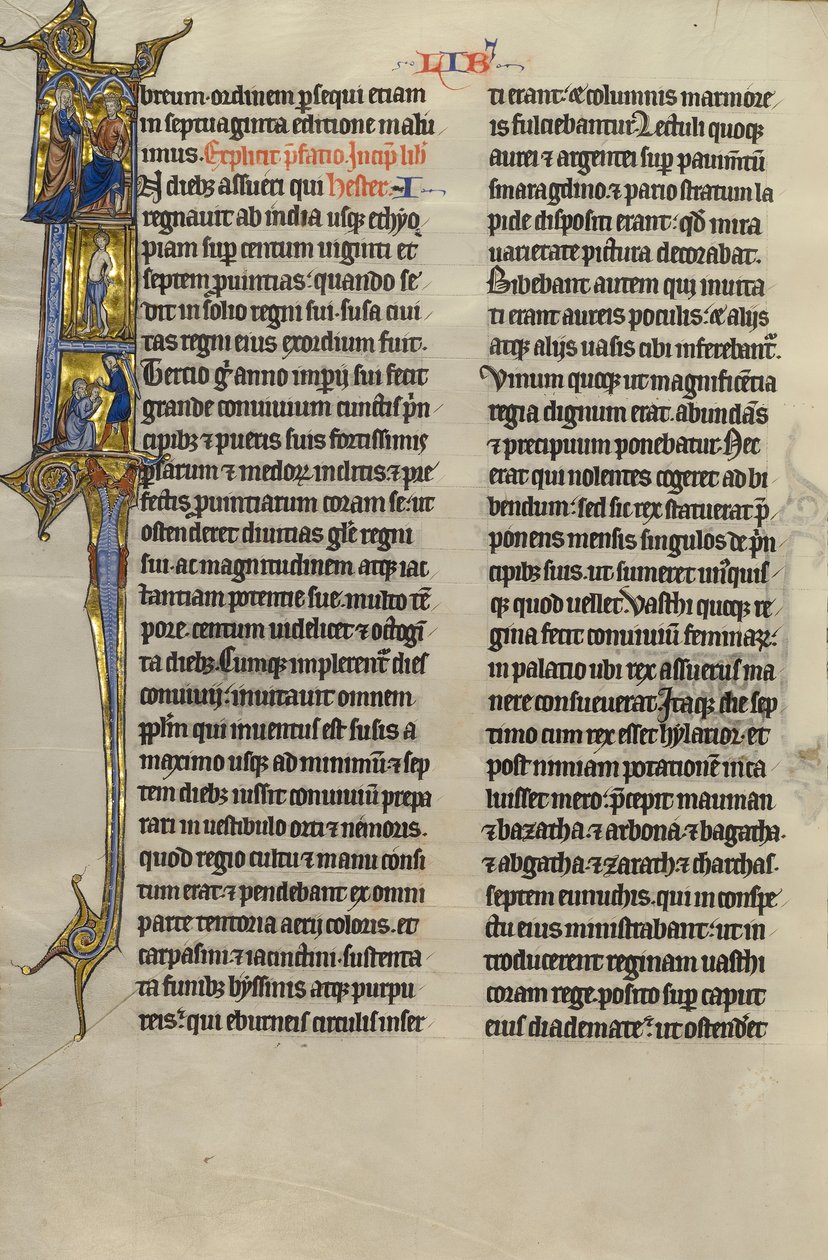 LIB
breum. ordinem ꝑsequi etiam
in septuaginta editione malu
imus. Explicit p̄fatio. Incip̄ lib̄
N diebꝫ assueri qui hester. I
regnauit ab india usqꝫ ethyo
piam sup̄ centum uiginti et
septem ꝓuintias: quando se
dit in solio regni sui. susa ciui
tas regni eius exordium fuit.
Tercio gͥ anno imp̄ij sui fecit
grande conuiuium cunctis p̄n
cipibꝫ ⁊ pueris suis fortissimis
ꝑsarum ⁊ medoꝝ inclitis. ⁊ pre
fectis ꝓuintiarum coram se. ut
ostenderet diuitias gl̄e regni
sui. ac magnitudinem atqꝫ iac
tantiam potentie sue. multo tē
pore. centum uidelicet ⁊ octogī
ta diebꝫ. Cumqꝫ implerent᷑ dies
conuiuij: inuitauit omnem
pp̄lm qui inuentus est susis a
maximo usqꝫ ad minimū. ⁊ sep
tem diebꝫ iussit conuiuiū prepa
rari in uestibulo orti ⁊ nemoris.
quod regio cultu ⁊ manu consi
tum erat. ⁊ pendebant ex omni
parte tentoria aerij coloris. et
carpasini. ⁊ iacinctini. sustenta
ta funibꝫ byssinis atqꝫ purpu
reis: qui eburneis circulis inser
ti erant: & columnis marmore
is fulciebantur. Lectuli quoqꝫ
aurei ⁊ argentei sup̄ pauim̄tū
smaragdino. ⁊ pario stratum la
pide dispositi erant: qd̄ mira
uarietate pictura decorabat.
Bibebant autem qui inuita
ti erant aureis poculis: & alijs
atqꝫ alijs uasis cibi inferebant᷑.
Vinum quoqꝫ ut magnificētia
regia dignum erat. abundās
⁊ precipuum ponebatur. Nec
erat qui nolentes cogeret ad bi
bendum: sed sic rex statuerat p̄
ponens mensis singulos de p̄n
cipibꝫ suis. ut sumeret un̄quis
qꝫ quod uellet. Vasthi quoqꝫ re
gina fecit conuiuiū feminaꝝ:
in palatio ubi rex assuerus ma
nere consueuerat. Itaqꝫ die sep
timo cum rex esset hylarior. et
post nimiam potationē inca
luisset mero: p̄cepit mauman
⁊ bazatha. ⁊ arbona. ⁊ bagatha.
⁊ abgatha. ⁊ zarath. ⁊ charchas.
septem eunuchis. qui in conspe
ctu eius ministrabant: ut in
troducerent reginam uasthi
coram rege. posito sup̄ caput
eius diademate: ut ostend̄et